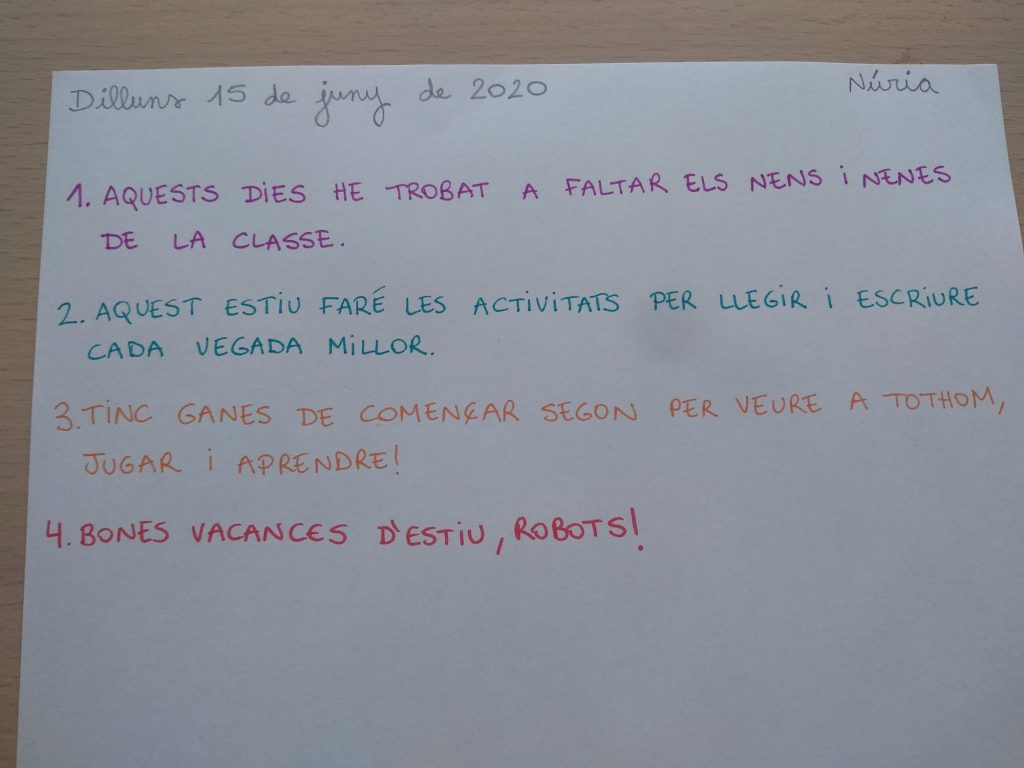 Dilluns 15 de juny de 2020 Núria
1. AQUESTS DIES HE TROBAT A FALTAR ELS NENS i NENES
DE LA CLASSE.
2. AQUEST ESTIU FARÉ LES ACTIVITATS PER LLEGIR i ESCRIURE
CADA VEGADA MILLOR.
3. TINC GANES DE COMENÇAR SEGON PER VEURE A TOTHOM,
JUGAR i APRENDRE!
4. BONES VACANCES D'ESTIU, ROBOTS!